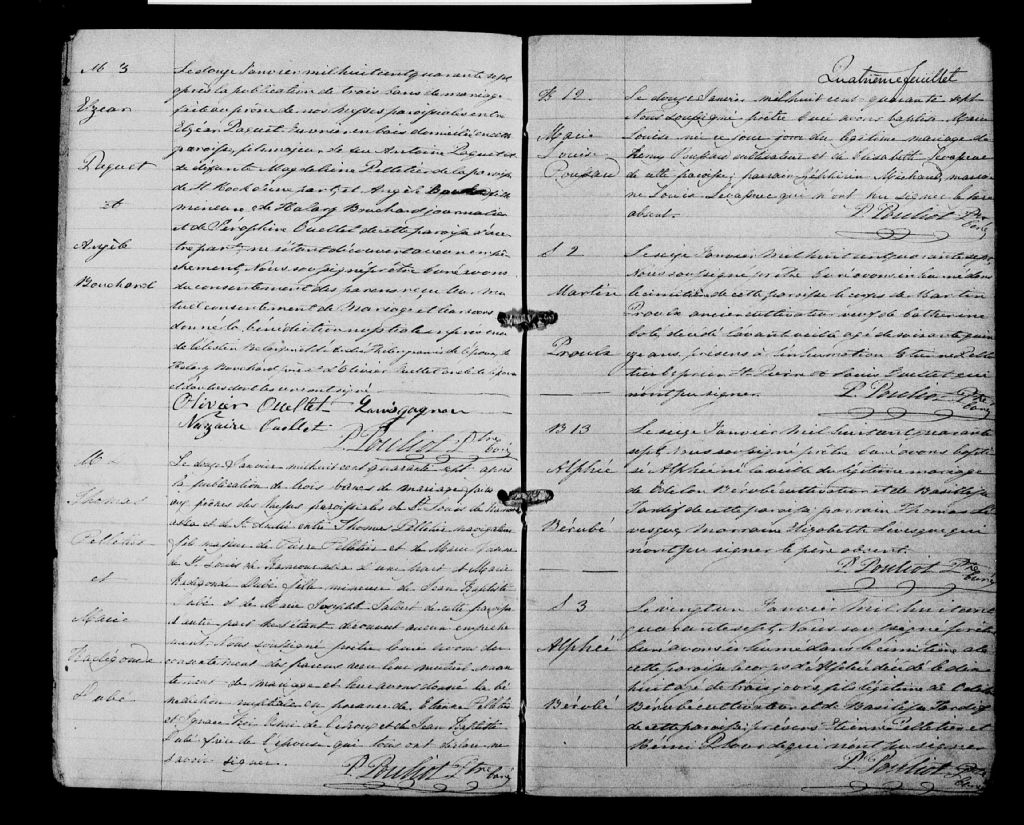 M 3
Elzear
Paquet
et
Angèle
Bouchard
Le douze Janvier mil huit cent quarante sept
après la publication de trois bans de mariage
faite au prône de nos messes paroissiales entre
Elzéar Paquet domicilié en cette
paroisse, fils majeur de feu Antoine Paquet et
de défunte Magdeleine Pelletier de la paroisse
de St Roch d'une part, et Angèle Bouchard fille
mineure de Hilary Bouchard journalier
et de Séraphine Ouellet de cette paroisse d'au
tre part; ne s'étant découvert aucun empê
chement, Nous soussigné prêtre curé avons
du consentement des parens reçu leur mu
tuel consentement de mariage et leur avons
donné la bénédiction nuptiale en présence
de Célestin de l'époux, de
Hilary Bouchard père et d'Olivier Ouellet oncle de l'épouse
et d'autres dont les uns ont signé
Olivier Ouellet Louis Gagnon
Nazaire Ouellet
P. Pouliot Ptre
curé
M
Thomas
Pelletier
et
Marie
Radégonde
Dubé
Le douze Janvier mil huit cent quarante sept après
la publication de trois bans de mariage faite
aux prônes des messes paroissiales de St Louis de Kamou
raska et de St entre Thomas Pelletier navigateur
fils majeur de Pierre Pelletier et de Marie
de St Louis de Kamouraska d'une part et Marie
Radégonde Dubé fille mineure de Jean Baptiste
Dubé et de Marie Josephte de cette paroisse
d'autre part ne s'étant découvert aucun empêche
ment, Nous soussigné prêtre curé avons du
consentement des parens reçu leur mutuel consen
tement de mariage et leur avons donné la bé
nédiction nuptiale en présence de Pelletier
et de et de Jean Baptiste
Dubé père de l'épouse qui tous ont déclaré ne
savoir signer.
P. Pouliot Ptre
curé
Quatrième feuillet
B 12.
Marie
Louise
Le douze Janvier mil huit cent quarante sept
Nous soussigné prêtre curé avons baptisé Marie
Louise née ce jour du légitime mariage de
cultivateur et de Elisabeth Levasseur
de cette paroisse; parrain Zéphirin Michaud, marrai
ne Louise Levasseur qui n'ont su signer le père
absent.
P. Pouliot Ptre
curé
S 2
Martin
Proulx
Le seize Janvier mil huit cent quarante sept
Nous soussigné prêtre curé avons inhumé dans
le cimetière de cette paroisse le corps de Martin
Proulx ancien cultivateur veuf de Catherine
décédé l'avant veille agé de soixante quin
ze ans, présens à l'inhumation Etienne Pelle
tier St Pierre et Louis Ouellet qui
n'ont pu signer.
P. Pouliot Ptre
curé
B 13
Alphée
Bérubé
Le seize Janvier mil huit cent quarante
sept nous soussigné prêtre curé avons bapti
sé Alphée né la veille du légitime mariage
de Octave Bérubé cultivateur et de Basilisse
Sardif de cette paroisse parrain Thomas Le
vesque, Marraine Elizabeth Levesque qui
n'ont pu signer le père absent.
P. Pouliot Ptre
curé
S 3
Alphée
Bérubé
Le vingt un Janvier mil huit cent
quarante sept, Nous soussigné prêtre
curé avons inhumé dans le cimetière de
cette paroisse le corps d'Alphée décédé le dix
huit agé de trois jours, fils légitime de Octave
Bérubé cultivateur et de Basilisse Sardif
de cette paroisse présens Etienne Pelletier et
Rémi Plourde qui n'ont pu signer
P. Pouliot Ptre
curé